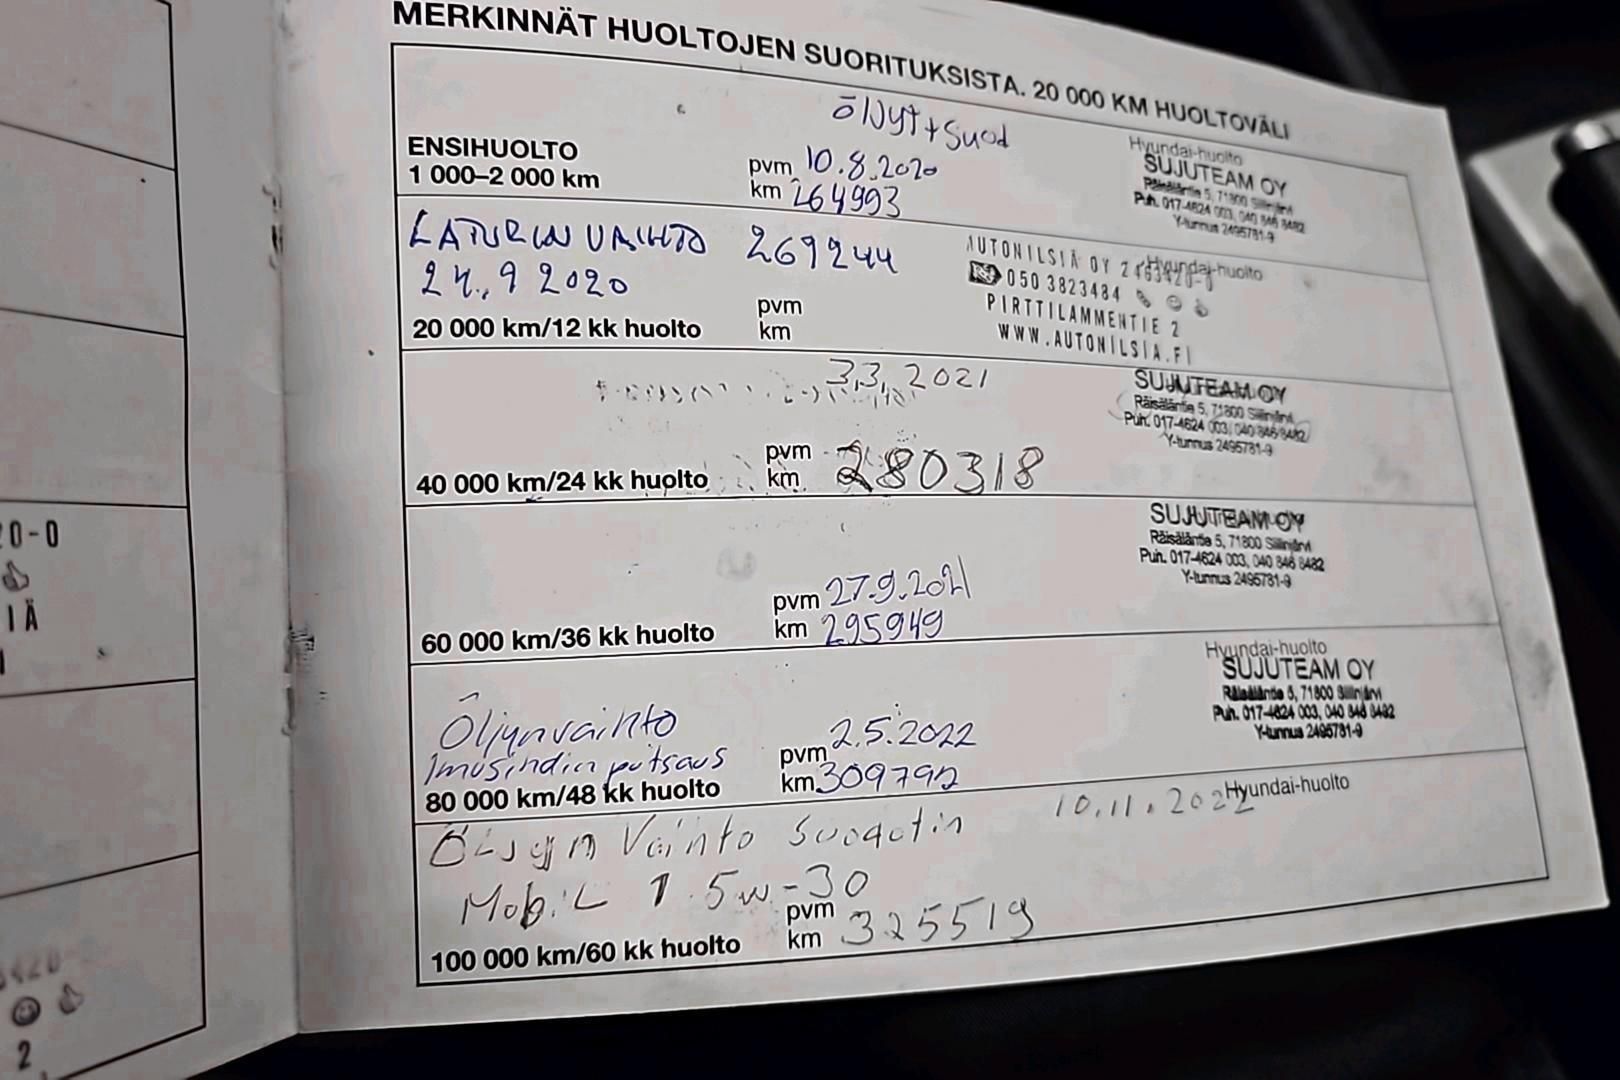 MERKINNÄT HUOLTOJEN SUORITUKSISTA. 20 000 KM HUOLTOVÄLI
öljyt + suod
ENSIHUOLTO
1 000–2 000 km
pvm 10.8.2020
km 264993
Hyundai-huolto
SUJUTEAM OY
Räisäläntie 5, 71800 Siilinjärvi
Puh. 017-4624 003, 040 846 8482
Y-tunnus 2495781-9
LATURIN VAIHTO 269244
24.9 2020
20 000 km/12 kk huolto
pvm
km
Hyundai-huolto
AUTONILSIÄ OY 2463420-0
050 3823484
PIRTTILAMMENTIE 2
WWW.AUTONILSIA.FI
3.3.2021
40 000 km/24 kk huolto
pvm
km 280318
SUJUTEAM OY
Räisäläntie 5, 71800 Siilinjärvi
Puh. 017-4624 003, 040 846 8482
Y-tunnus 2495781-9
60 000 km/36 kk huolto
pvm 27.9.2021
km 295949
SUJUTEAM OY
Räisäläntie 5, 71800 Siilinjärvi
Puh. 017-4624 003, 040 846 8482
Y-tunnus 2495781-9
Öljynvaihto
Imusihdin putsaus
80 000 km/48 kk huolto
pvm 2.5.2022
km 309792
Hyundai-huolto
SUJUTEAM OY
Räisäläntie 5, 71800 Siilinjärvi
Puh. 017-4624 003, 040 846 8482
Y-tunnus 2495781-9
Öljyn Vaihto Suodatin 10.11.2022
Hyundai-huolto
Mobil 1 5w-30
100 000 km/60 kk huolto
pvm
km 325519
20-0
IÄ
I
3420-
2